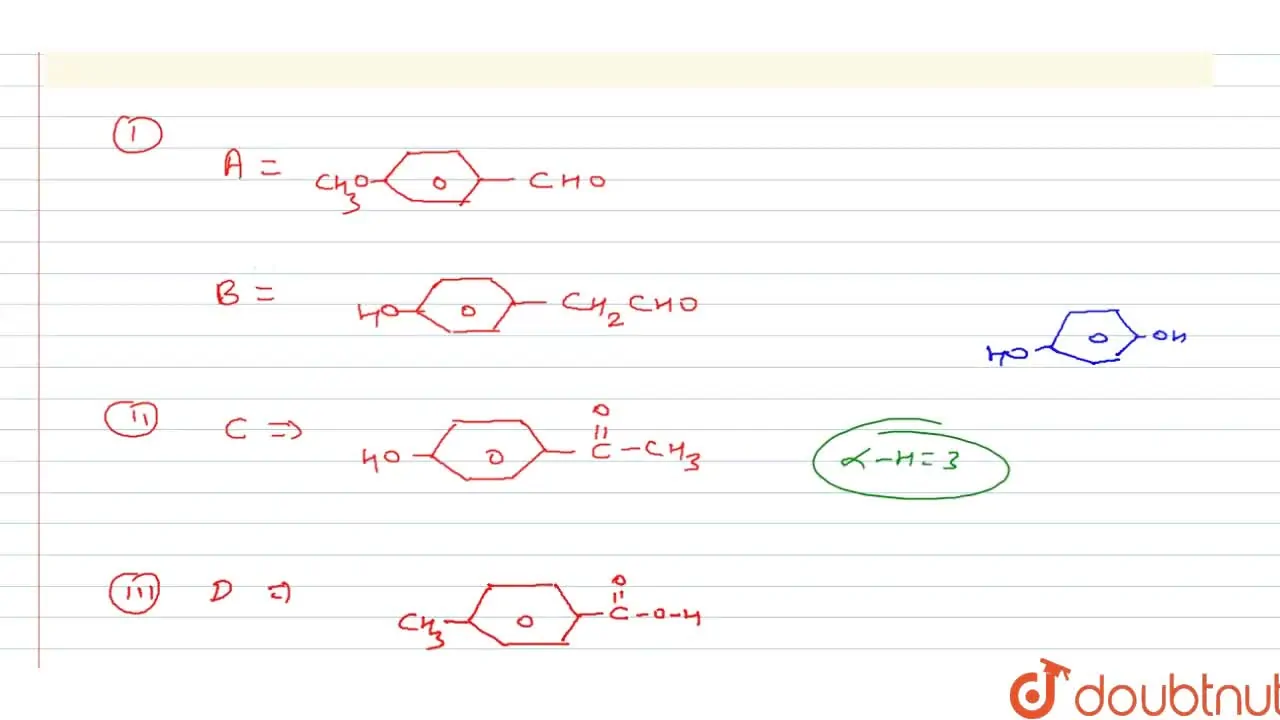 i
A = CH3O CHO
B = HO CH2CHO
HO OH
ii C ⇒ HO O
C - CH3
α - H = 3
iii D ⇒ CH3 O
C - O - H
doubtnut